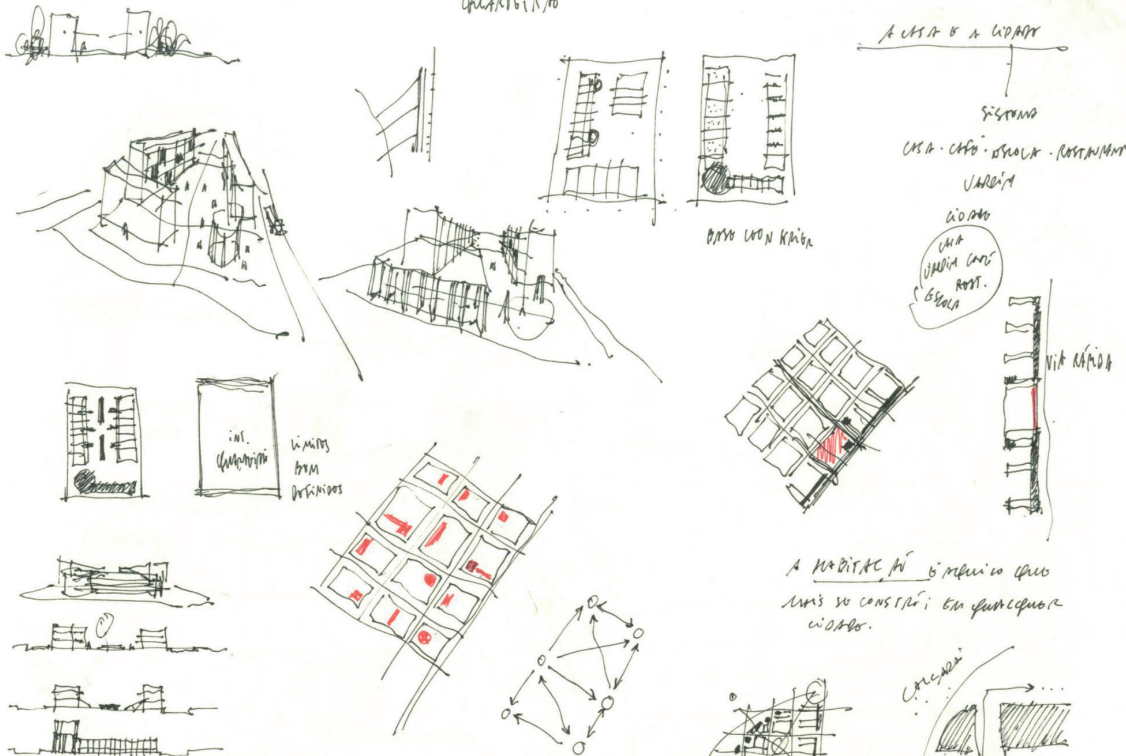 QUARTEIRÃO
A CASA E A CIDADE
SISTEMA
CASA · CAFÉ · ESCOLA · RESTAURANT
JARDIM
CIDADE
CASA
JARDIM CAFÉ
REST.
ESCOLA
BASE LEON KRIER
VIA RÁPIDA
INT.
QUARTEIRÃO
LIMITES
BEM
DEFINIDOS
A HABITAÇÃO É AQUILO QUE
MAIS SE CONSTRÓI EM QUALQUER
CIDADE.
CALÇADA